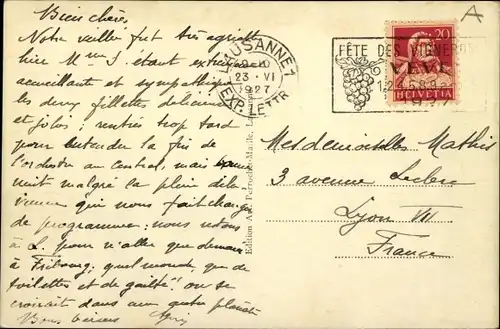 Bien chère,
Notre veillée fut très agréable
hier Mme S. étant extrêmement
accueillante et sympathique
les deux fillettes délicieuses
et jolies ; rentrés trop tard
pour entendre la fin de
l'orchestre au Central, mais
nuit malgré la pluie
qui nous fait changer
de programme : nous restons
à L. pour n'aller que demain
à Fribourg ; quel monde, que de
toilettes et de gaîté ! on se
croirait dans une autre planète
Bons baisers
LAUSANNE 1
23. VI
1927
EXP. LETTR
FÊTE DES VIGNERONS
VEVEY
1927
20
HELVETIA
A
Mesdemoiselles Mathis
3 avenue Leclerc
Lyon VII
France
Edition Art. Perrochet-Matile, Lausanne